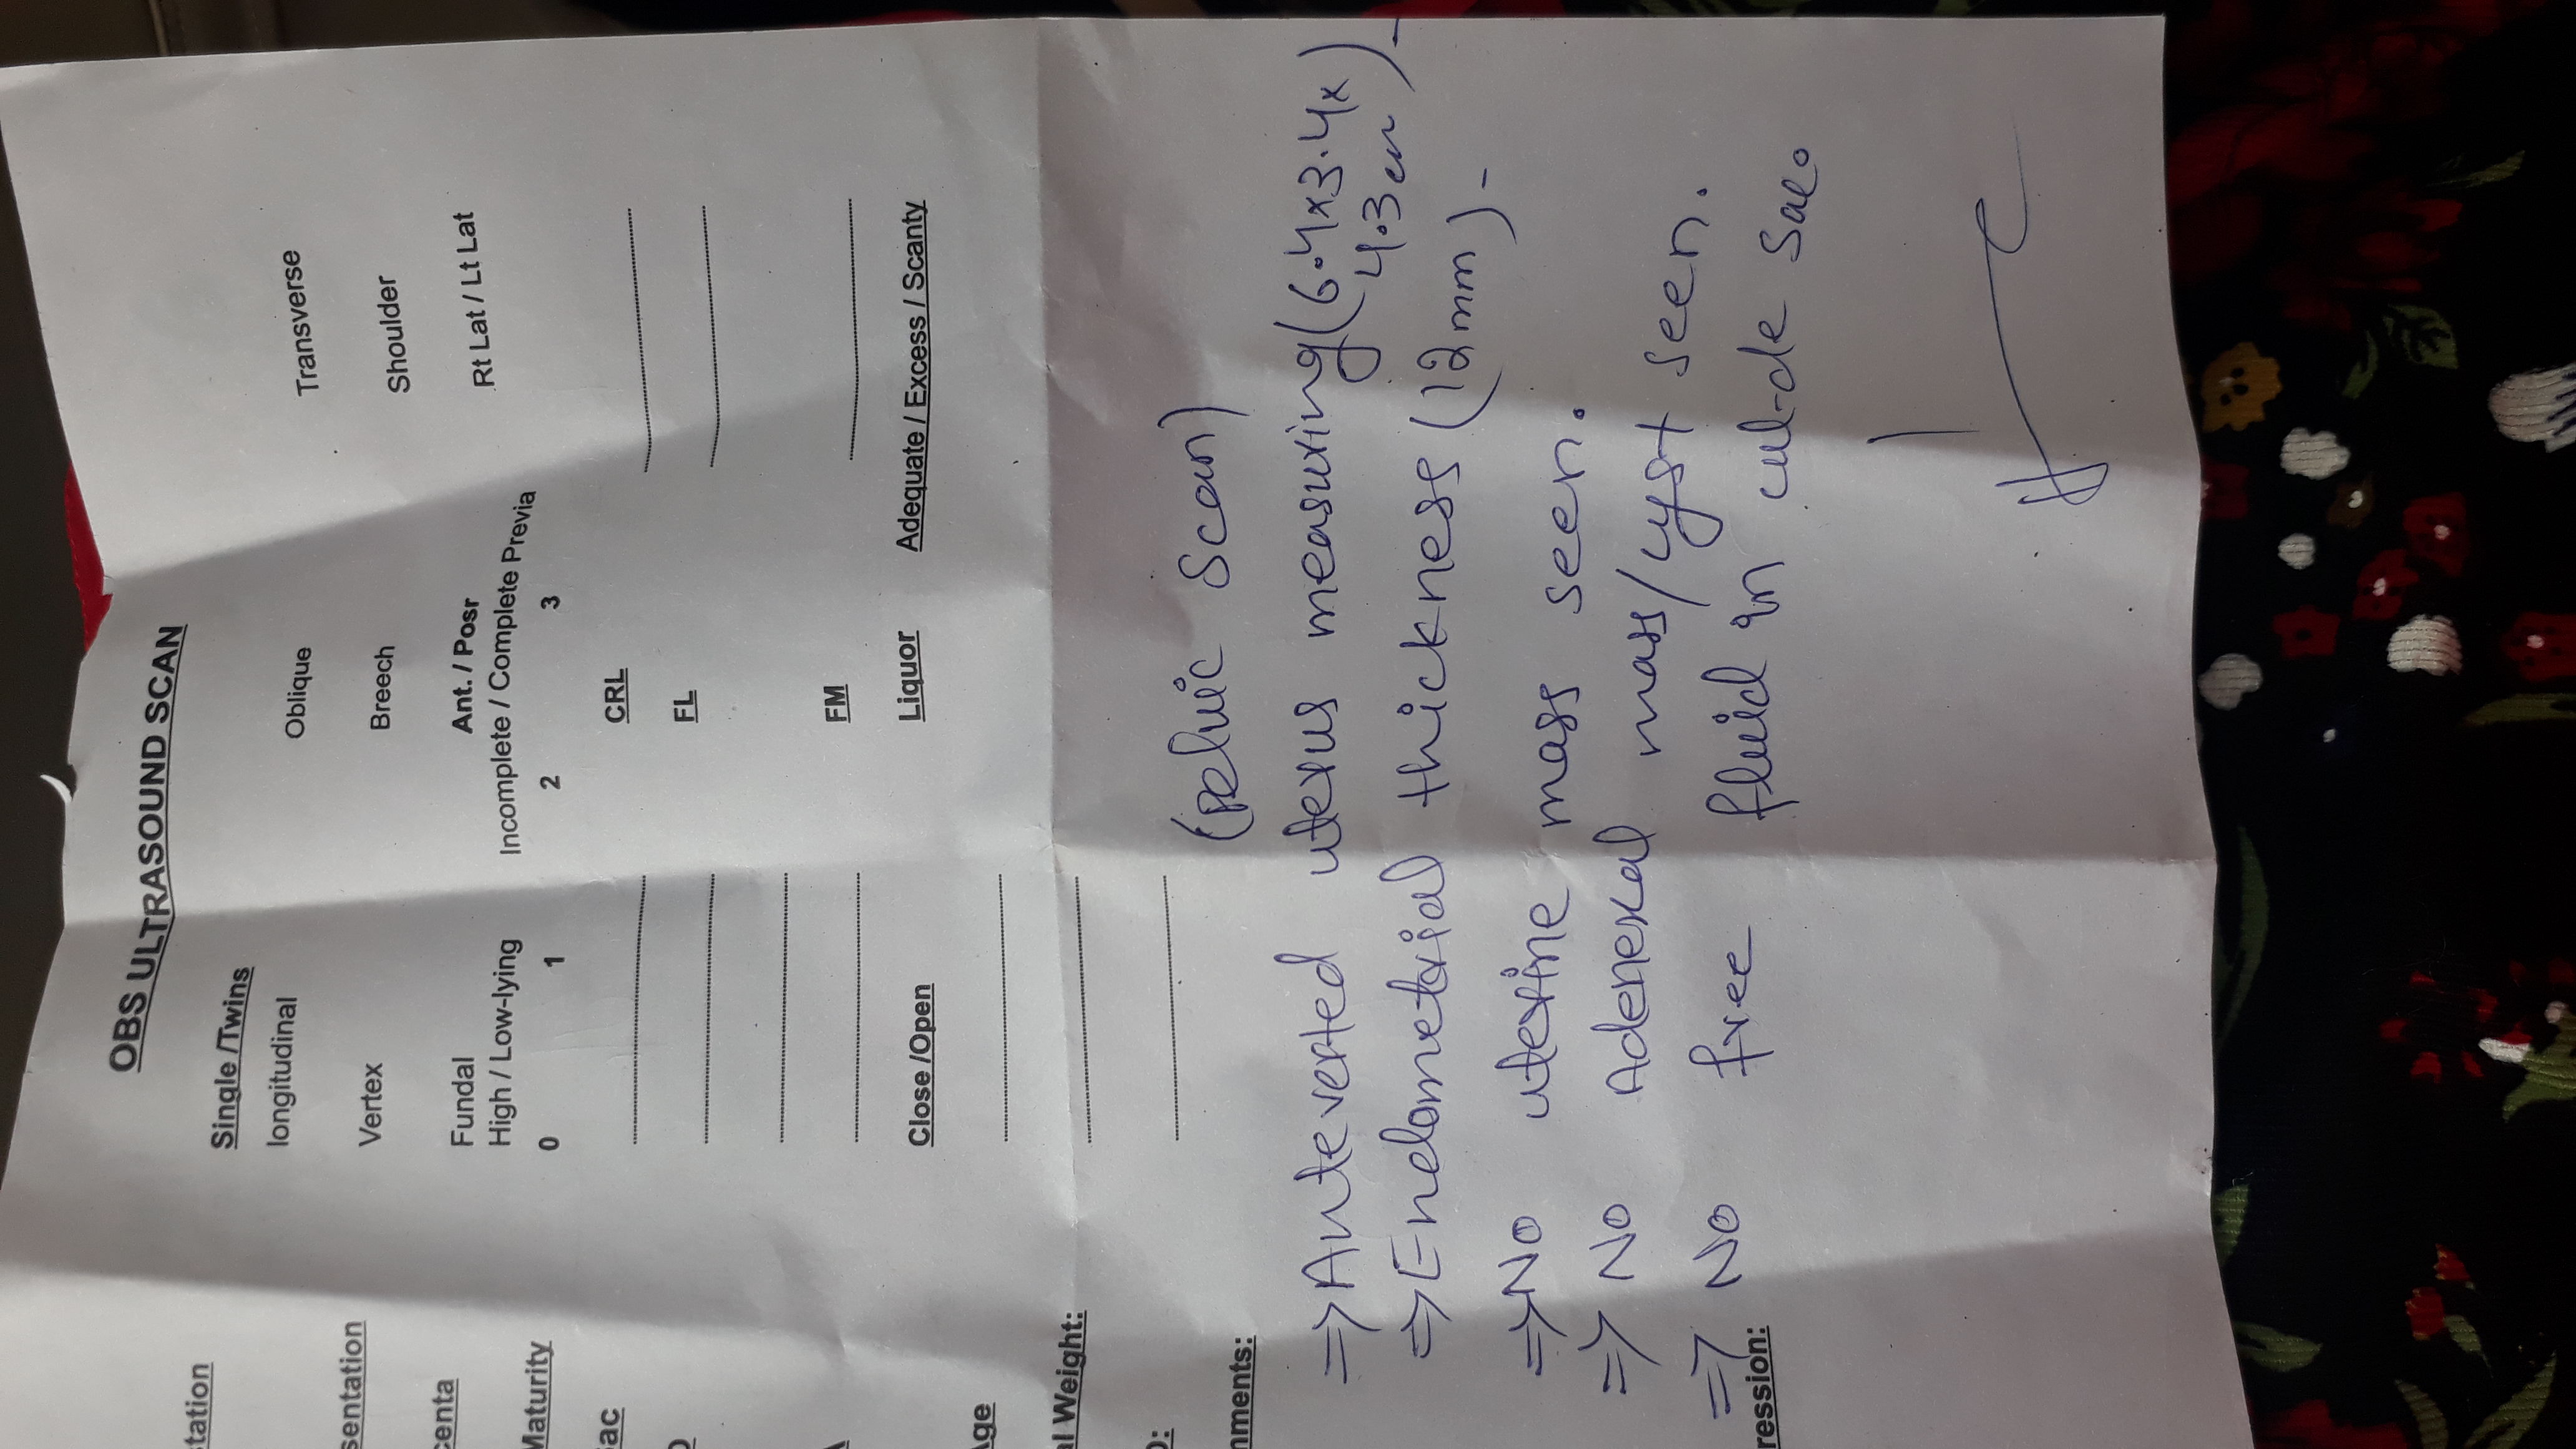 OBS ULTRASOUND SCAN
Single /Twins
longitudinal Oblique Transverse
Vertex Breech Shoulder
Fundal Ant. / Posr Rt Lat / Lt Lat
High / Low-lying Incomplete / Complete Previa
Maturity 0 1 2 3
CRL
FL
FM
Close /Open Liquor Adequate / Excess / Scanty
Weight:
(Pelvic Scan)
=> Anteverted uterus measuring (6.4x3.4x
4.3cm) -
=> Endometrial thickness (12mm) -
=> No uterine mass seen.
=> No Adenexal mass/cyst seen.
=> No free fluid in cul-de sac.